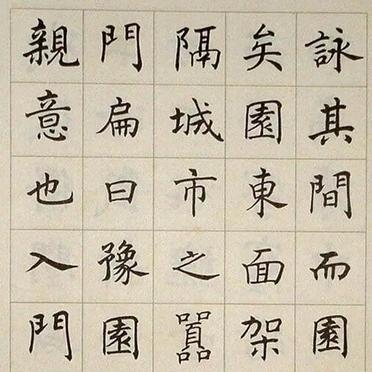 詠其間而園
矣園東面架
隔城市之囂
門扁曰豫園
親意也入門